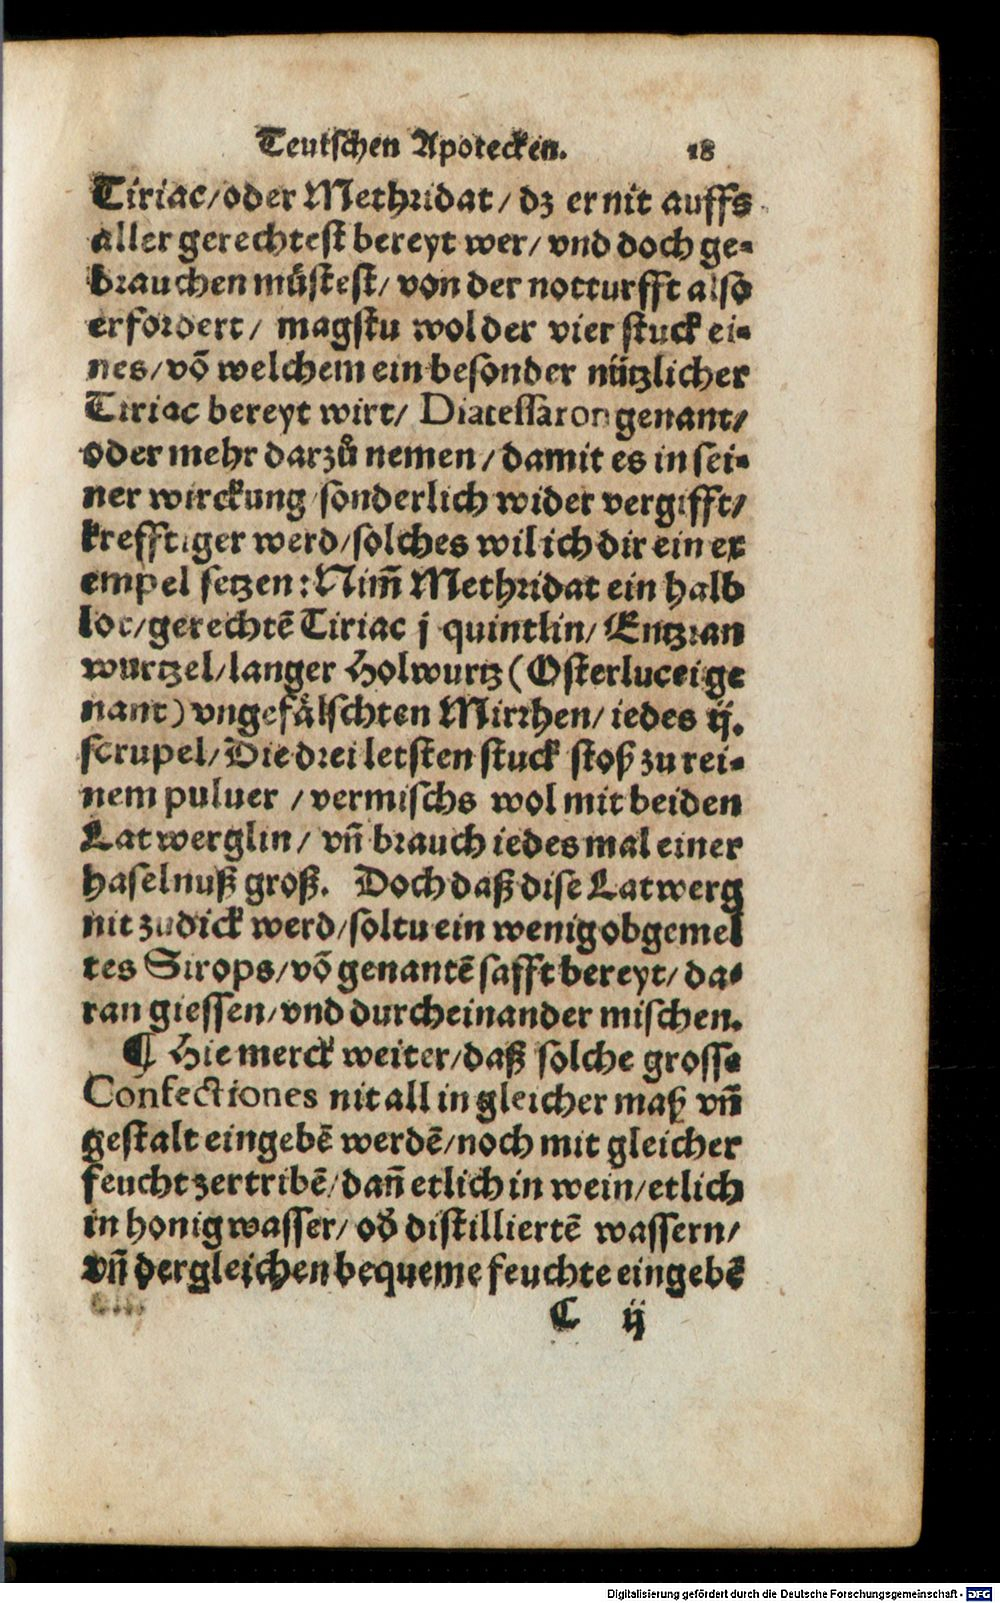 Teutschen Apotecken. 18
Tiriac/oder Methridat/ dz er nit auffs
aller gerechtest bereyt wer/ vnd doch ge⸗
brauchen müstest/ von der notturfft also
erfordert/ magstu wol der vier stuck ei⸗
nes/ võ welchem ein besonder nützlicher
Tiriac bereyt wirt/ Diatessaron genant/
oder mehr darzů nemen/ damit es in sei⸗
ner wirckung sonderlich wider vergifft/
krefftiger werd/ solches wil ich dir ein ex
empel setzen: Nim̃ Methridat ein halb
lot/ gerechtẽ Tiriac j quintlin/ Entzian
wurtzel/ langer Holwurtz (Osterlucei ge
nant) vngefälschten Mirrhen/ iedes ij.
scrupel/ Die drei letsten stuck stoß zu rei⸗
nem puluer / vermischs wol mit beiden
Latwerglin/ vñ brauch iedes mal einer
haselnuß groß. Doch daß dise Latwerg
nit zu dick werd/ soltu ein wenig obgemel
tes Sirops/ võ genantẽ safft bereyt/ da⸗
ran giessen/ vnd durcheinander mischen.
¶ Hie merck weiter/ daß solche grosse
Confectiones nit all in gleicher maß vñ
gestalt eingebẽ werdẽ/ noch mit gleicher
feucht zertribẽ/ dañ etlich in wein/ etlich
in honigwasser/ od̕ distilliertẽ wassern/
vñ dergleichen bequeme feuchte eingebẽ
C ij
Digitalisierung gefördert durch die Deutsche Forschungsgemeinschaft - DFG